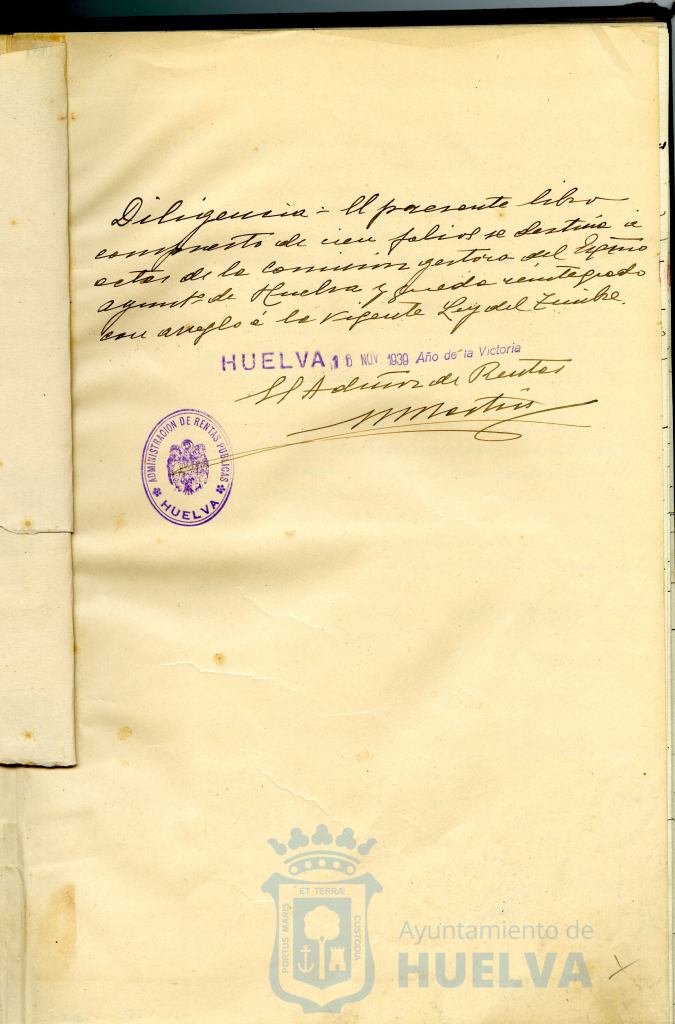 Diligencia = El presente libro
compuesto de cien folios se destina á
actas de la Comision gestora del Exmo
Ayuntº de Huelva y queda reintegrado
con arreglo á la vigente Ley del Timbre.
HUELVA, 16 NOV. 1939 Año de la Victoria
El Admor de Rentas
M Martin
ADMINISTRACION DE RENTAS PUBLICAS
HUELVA
ET TERRÆ
PORTUS MARIS
CUSTODIA
Ayuntamiento de
HUELVA